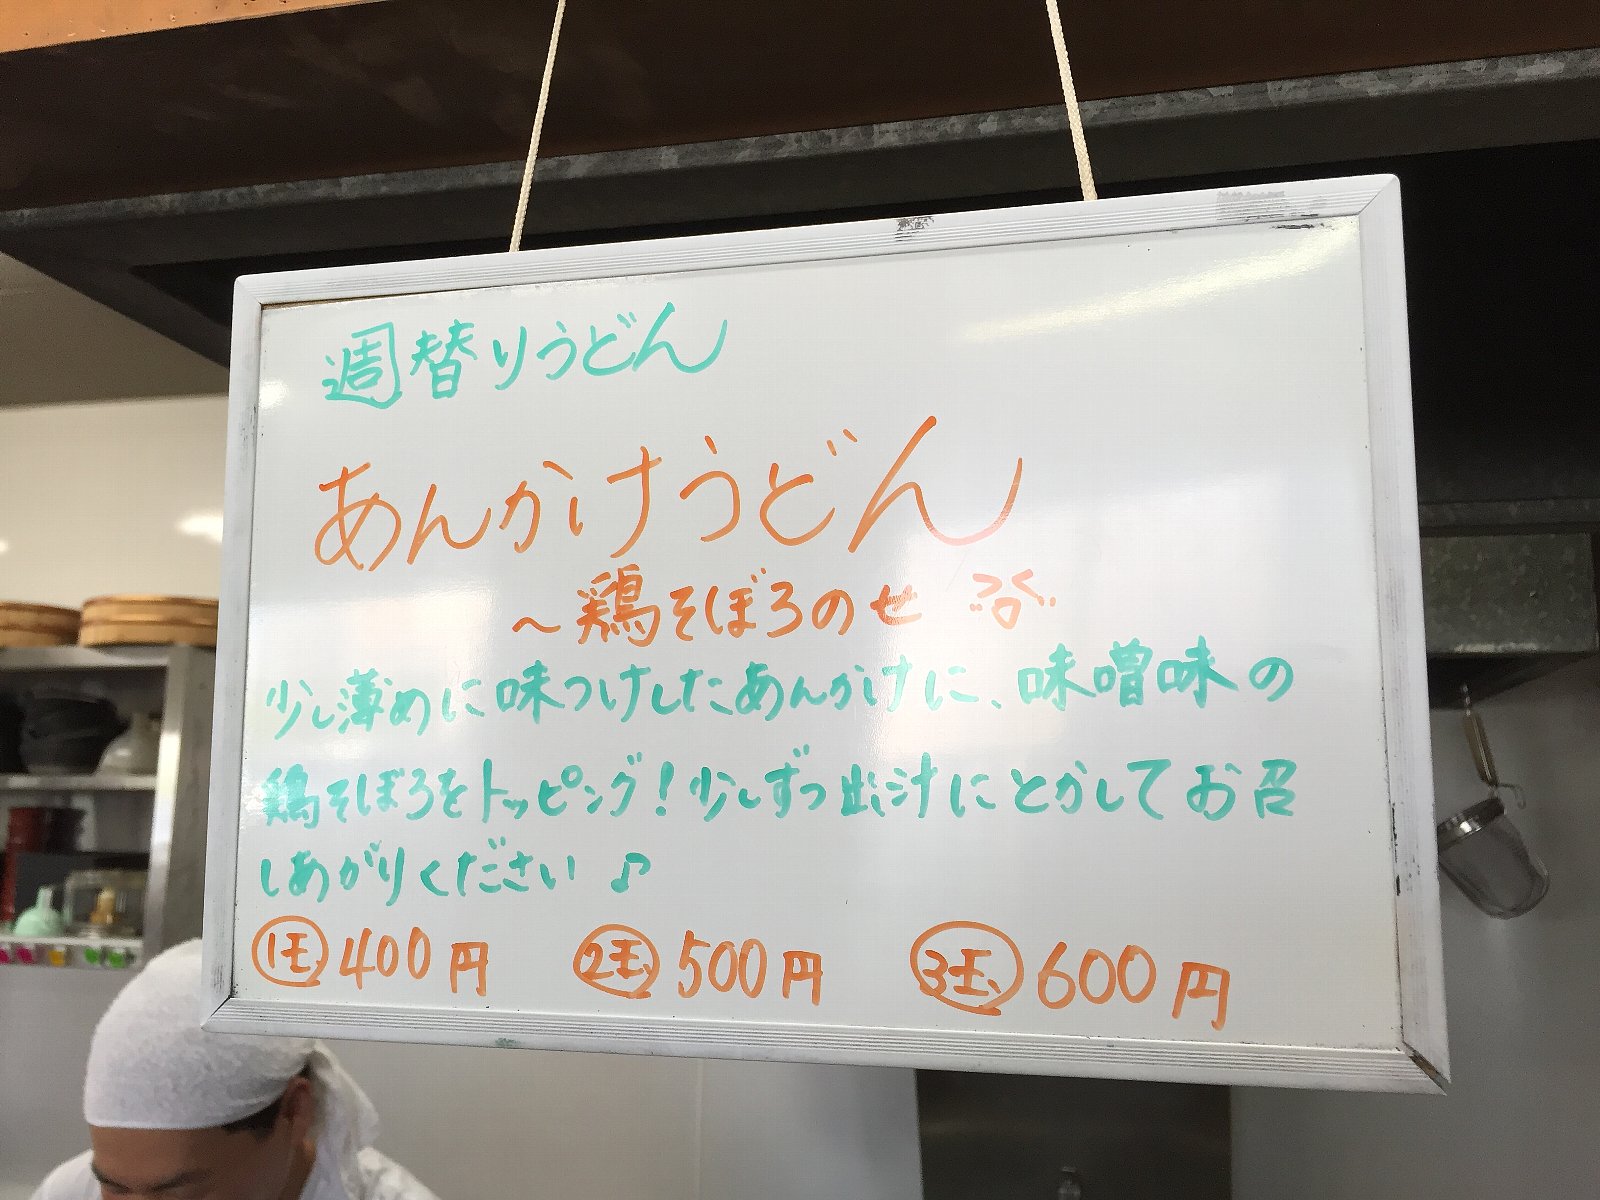 週替りうどん
あんかけうどん
～鶏そぼろのせ
少し薄めに味つけしたあんかけに、味噌味の
鶏そぼろをトッピング!少しずつ出汁にとかしてお召
しあがりください♪
1玉 400円 2玉 500円 3玉 600円